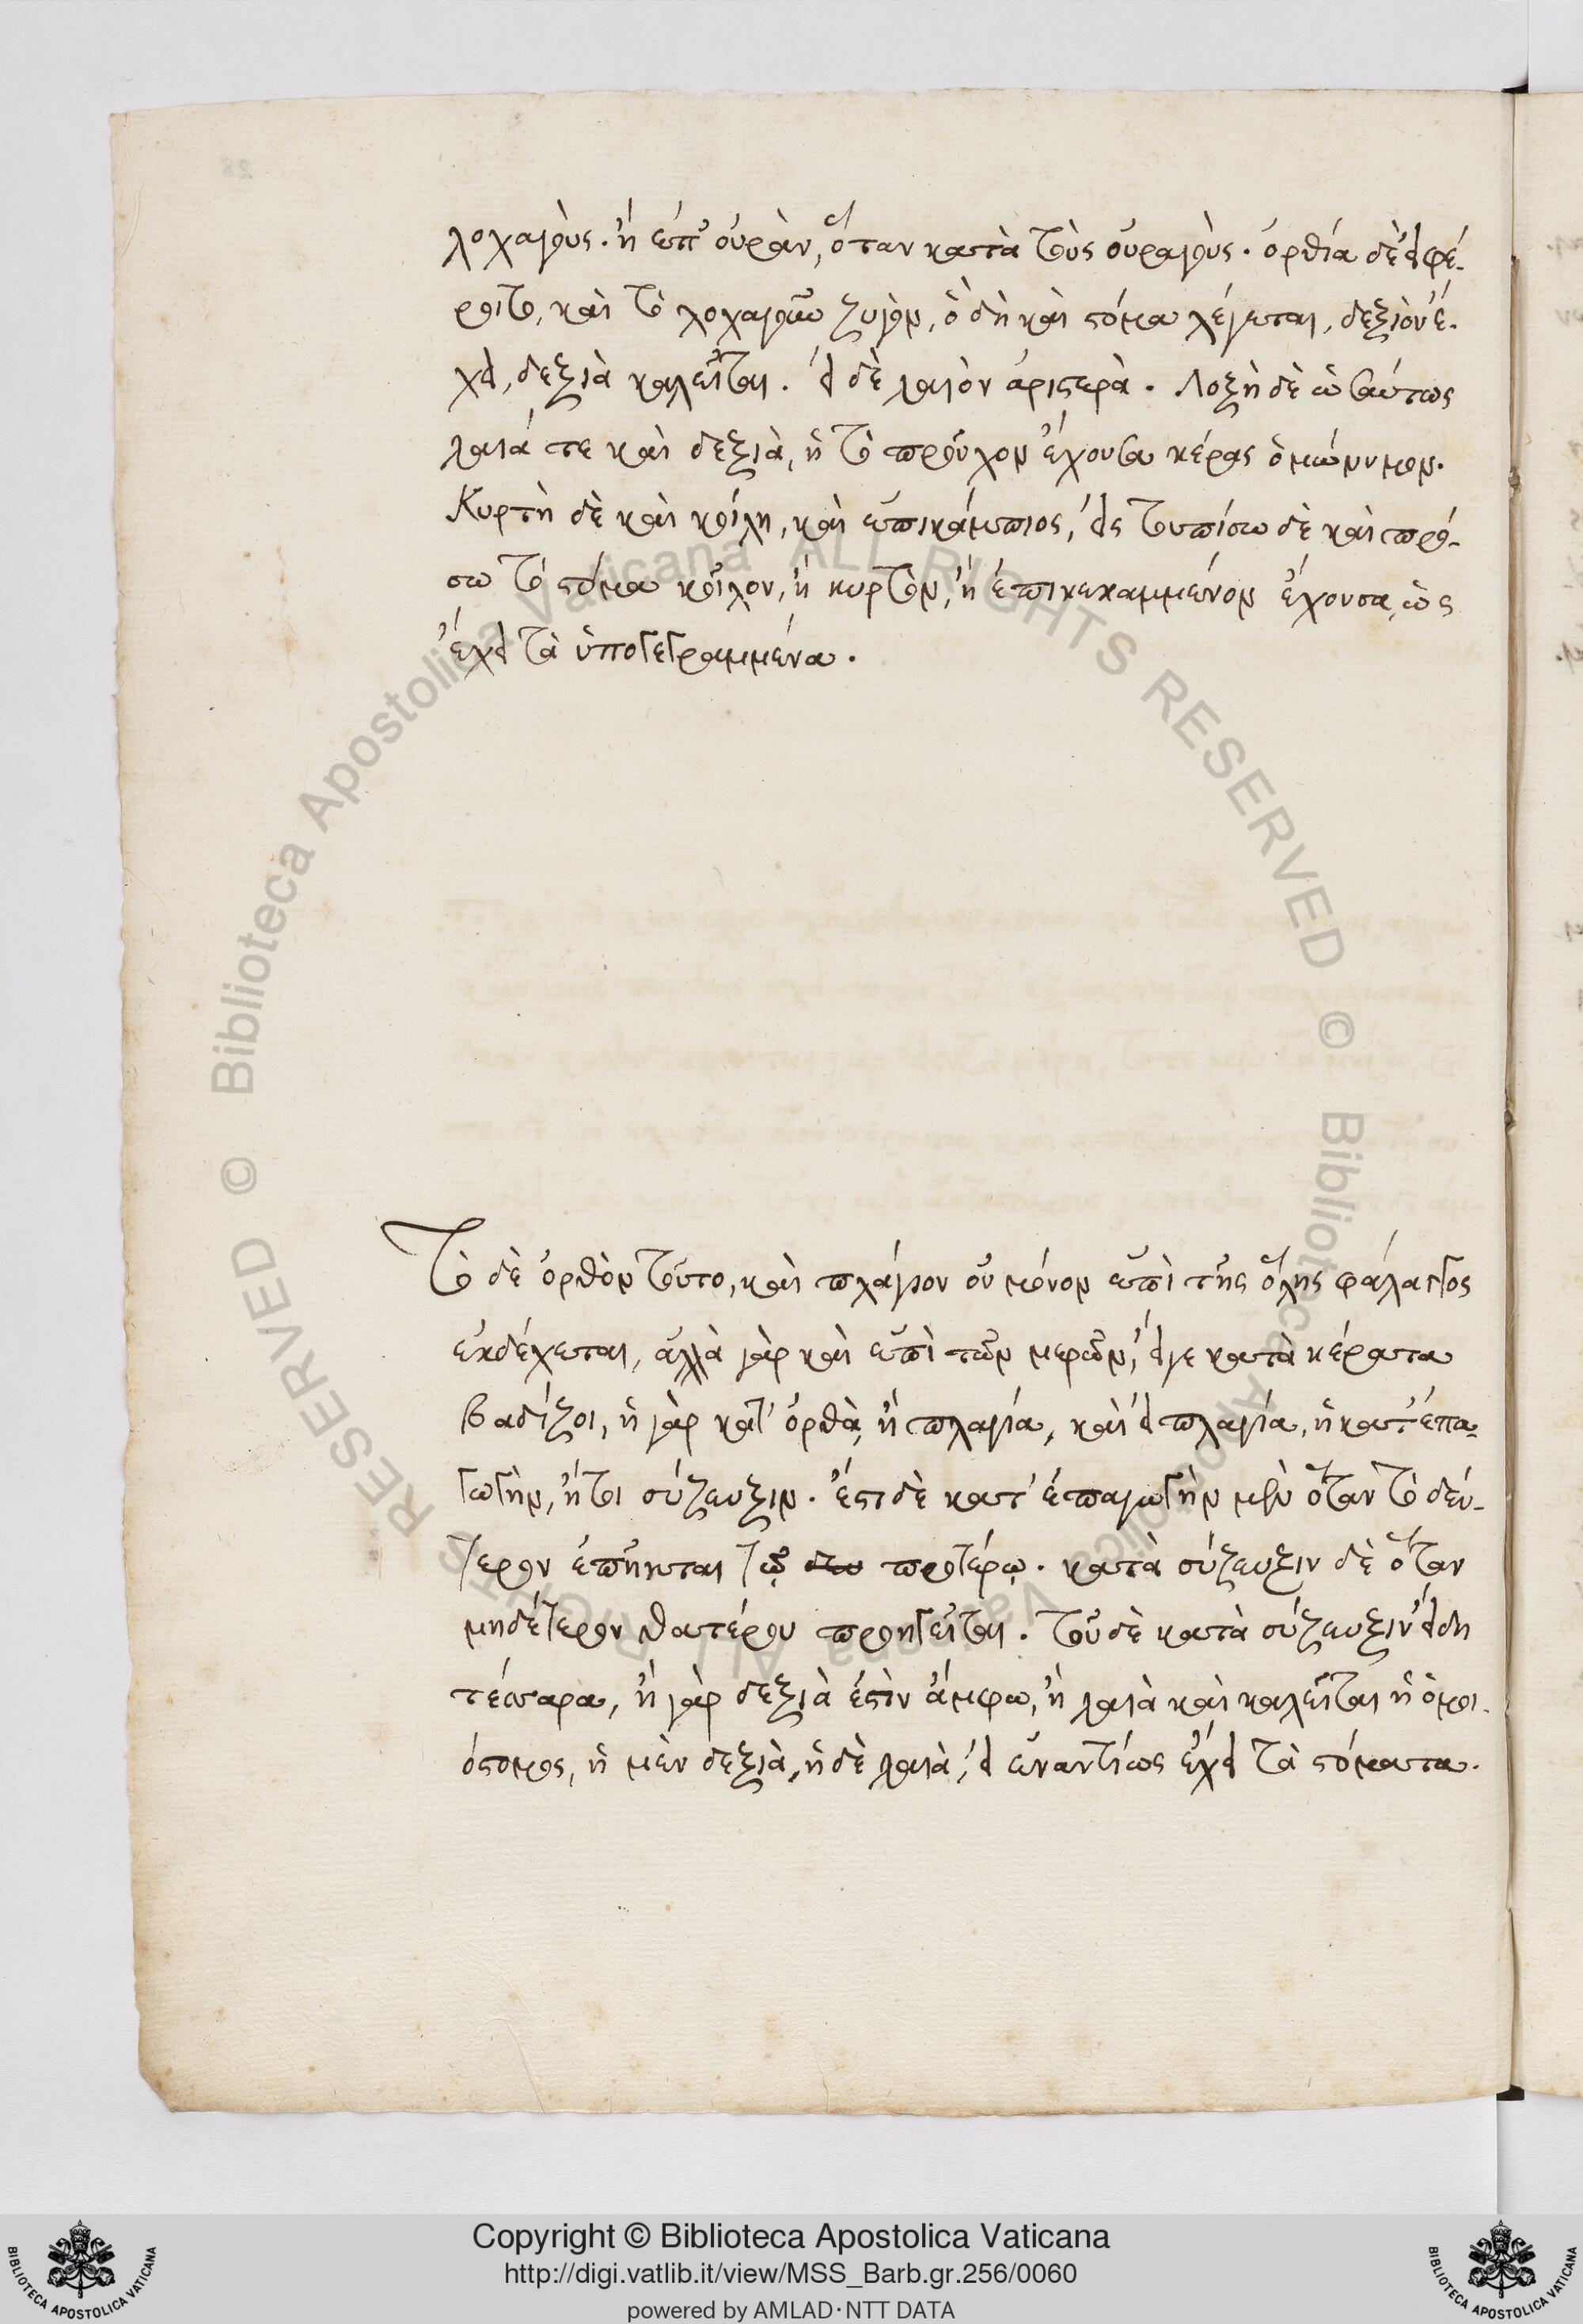 λοχαγοὺς. ἢ ἐπ' οὐρὰν, ὅταν κατὰ τοὺς οὐραγοὺς. ὀρθία δὲ εἰ φέ-
ροιτο, καὶ τὸ λοχαγῶν ζυγὸν, ὃ δὴ καὶ στόμα λέγεται, δεξιὸν ἔ-
χει, δεξιὰ καλεῖται. εἰ δὲ λαιὸν ἀριστερὰ. Λοξὴ δὲ ὡσαύτως
λαιά τε καὶ δεξιὰ, ἡ τὸ προὖχον ἔχουσα κέρας ὁμώνυμον.
Κυρτὴ δὲ καὶ κοίλη, καὶ ἐπικάμπιος, εἰς τουπίσω δὲ καὶ πρό-
σω τὸ στόμα κοῖλον, ἢ κυρτὸν, ἢ ἐπικεκαμμένον ἔχουσα, ὡς
ἔχει τὰ ὑπογεγραμμένα.
Τὸ δὲ ὀρθὸν τοῦτο, καὶ πλάγιον οὐ μόνον ἐπὶ τῆς ὅλης φάλαγγος
ἐκδέχεται, ἀλλὰ γὰρ καὶ ἐπὶ τῶν μερῶν, εἴγε κατὰ κέρατα
βαδίζοι, ἢ γὰρ κατ' ὀρθὰ, ἢ πλαγία, καὶ εἰ πλαγία, ἢ κατ' ἐπα-
γωγὴν, ἤτοι σύζευξιν. ἔστι δὲ κατ' ἐπαγωγὴν μὲν ὅταν τὸ δεύ-
τερον ἐπῆκται τῷ προτέρῳ. κατὰ σύζευξιν δὲ ὅταν
μηδέτερον θατέρου προηγεῖται. τοῦ δὲ κατὰ σύζευξιν εἴδη
τέσσαρα, ἢ γὰρ δεξιὰ ἐστὶν ἄμφω, ἢ λαιὰ καὶ καλεῖται ἢ ὁμοι-
όστομος, ἡ μὲν δεξιὰ, ἡ δὲ λαιὰ, εἰ ἐναντίως ἔχει τὰ στόματα.
Copyright © Biblioteca Apostolica Vaticana
http://digi.vatlib.it/view/MSS_Barb.gr.256/0060
powered by AMLAD·NTT DATA